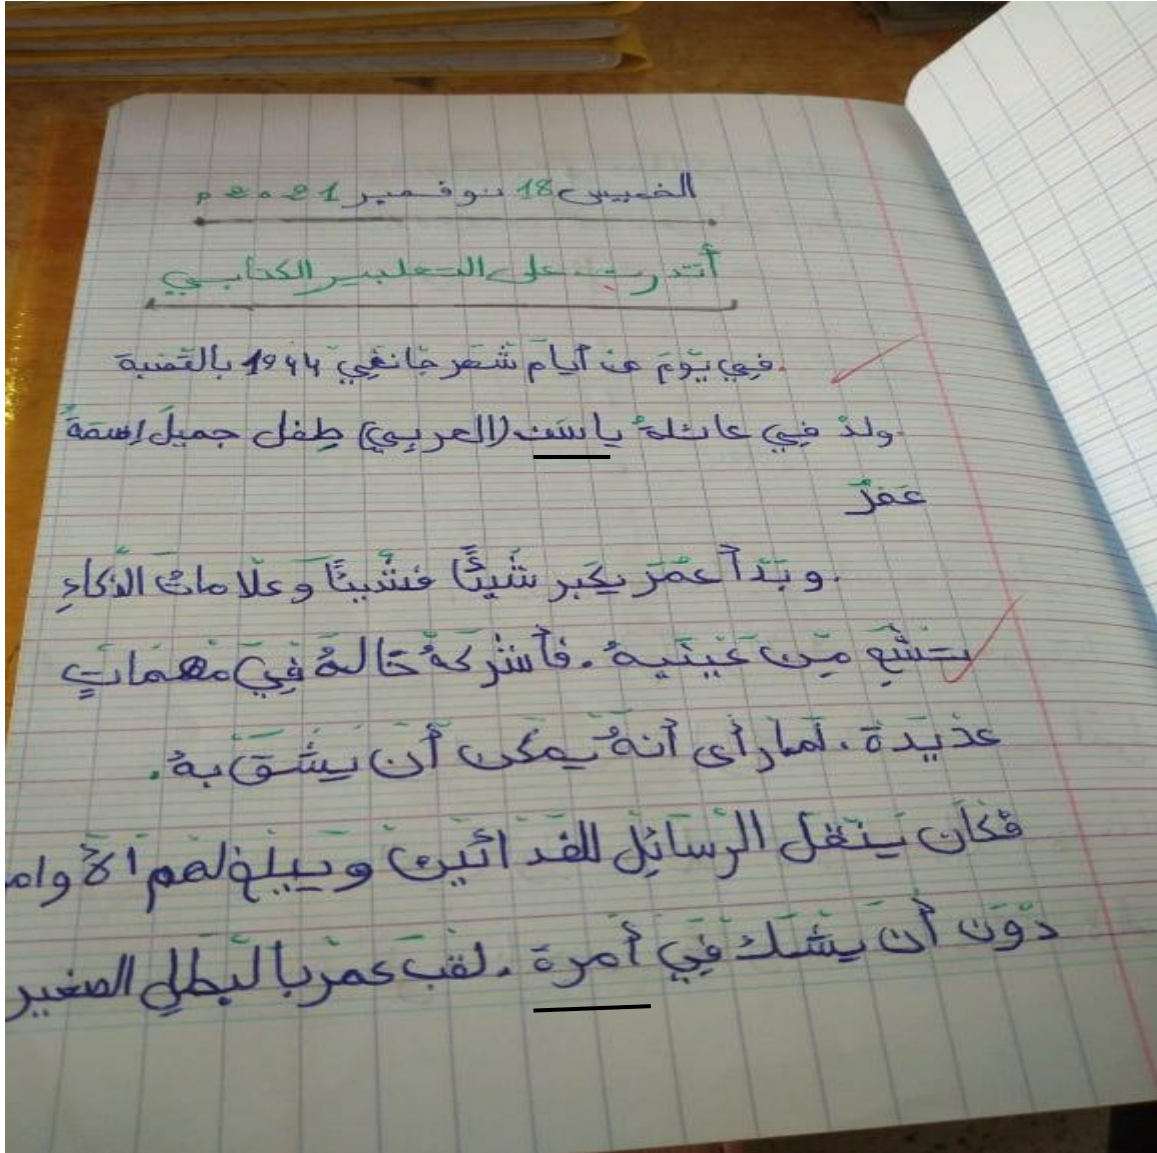 الخميس 18 نوفمبر 2021 م
أتدرب على التعبير الكتابي
.في يَوْمَ من أيامَ شَهر جَانفِي 1944 بالقصبة
.ولدْ فِي عائلةُ ياسَف (العربِي) طِفل جميلَ إسمَهُ
عَمَرٌ
.وبَدَأ عمْرَ يكَبر شَيئًا فشْيئًا وعلَامات الذكاءِ
تشَّعِ مِن عَينَيهْ. فأشْركهُ خالهُ فِي مَهمَاتٍ
عدَيدَة، لمَا رأى أنهُ يمكن أن يَثق بهُ.
فكَان يَنقل الرسَائِل للفدَائيَين ويَبلغ لهَم الأوام
دوَن أن يَشك فِي أمرة. لقبَ عمر بالبَطل الصغير